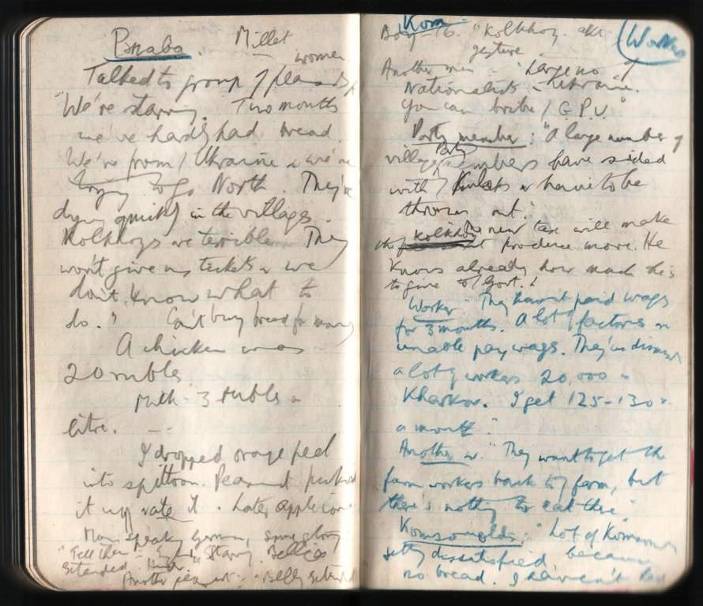 Millet
women
Talked to group of peasants
"We're starving. Two months
we've hardly had bread.
We're from Ukraine & we're
trying to go North. They're
dying quickly in the villages.
Kolkhozs are terrible. They
won't give us tickets & we
don't know what to
do." Can't buy bread for money
A chicken was
20 rubles
Milk - 3 rubles a
litre.
I dropped orange peel
into spittoon. Peasant picked
it up & ate it. Later apple core.
Man speaking German, same story
"Tell them Starving. Bellies
extended.
Another peasant: Belly extended
Kom
"Kolkhoz
gesture
(Worker
Another man - "Large no. of
Nationalists - Ukraine.
You can bribe G.P.U."
Party member: "A large number of
village Party members have sided
with Kulaks & have to be
thrown out."
The new tax will make
produce more. He
knows already how much he's
to give to Govt.
Worker - They haven't paid wages
for 3 months. A lot of factories
unable pay wages. They've dismissed
a lot of workers 20,000 -
Kharkov. I get 125-130
a month."
Another w. "They want to get the
farm workers back to farm, but
there's nothing to eat there"
Komsomolds: "Lot of Komsomols
getting dissatisfied because
no bread. I haven't had